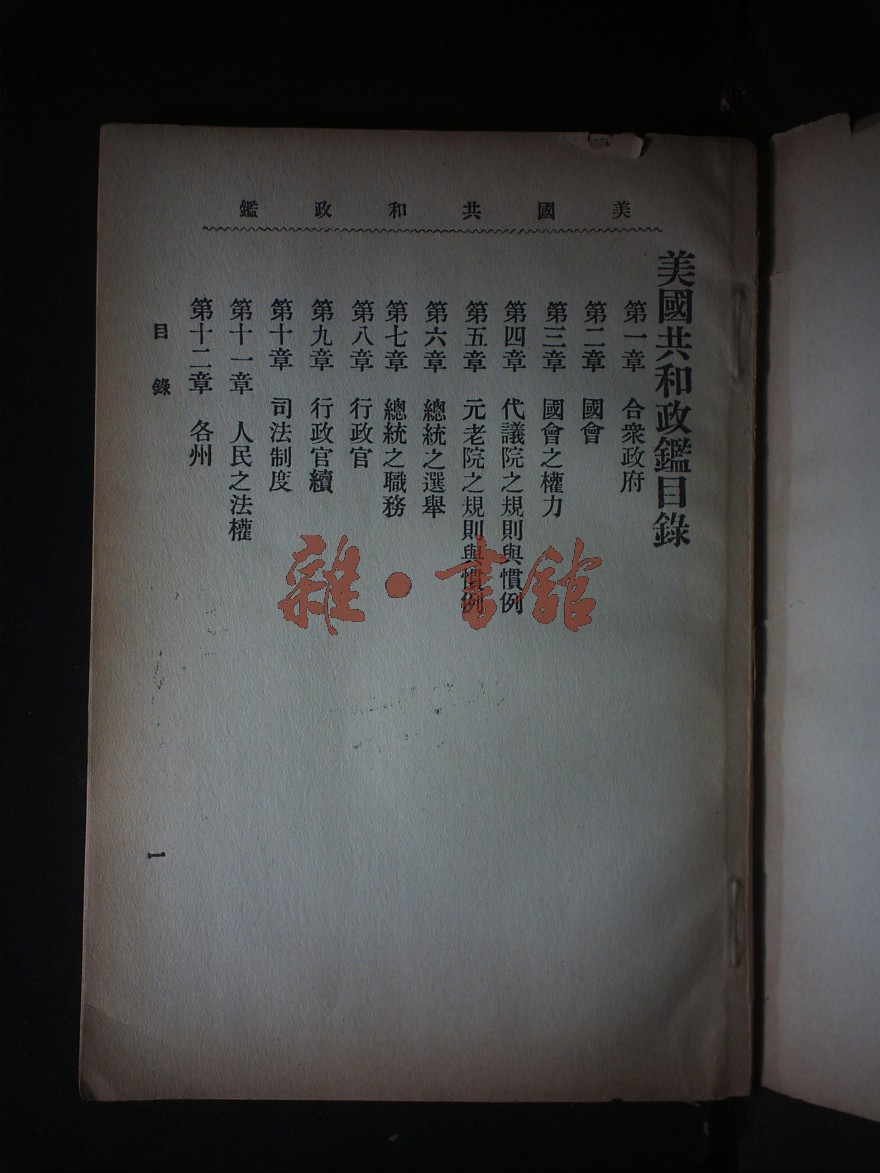 美國共和政鑑
美國共和政鑑目錄
第一章 合衆政府
第二章 國會
第三章 國會之權力
第四章 代議院之規則與慣例
第五章 元老院之規則與慣例
第六章 總統之選舉
第七章 總統之職務
第八章 行政官
第九章 行政官續
第十章 司法制度
第十一章 人民之法權
第十二章 各州
目錄
1
雜·書館